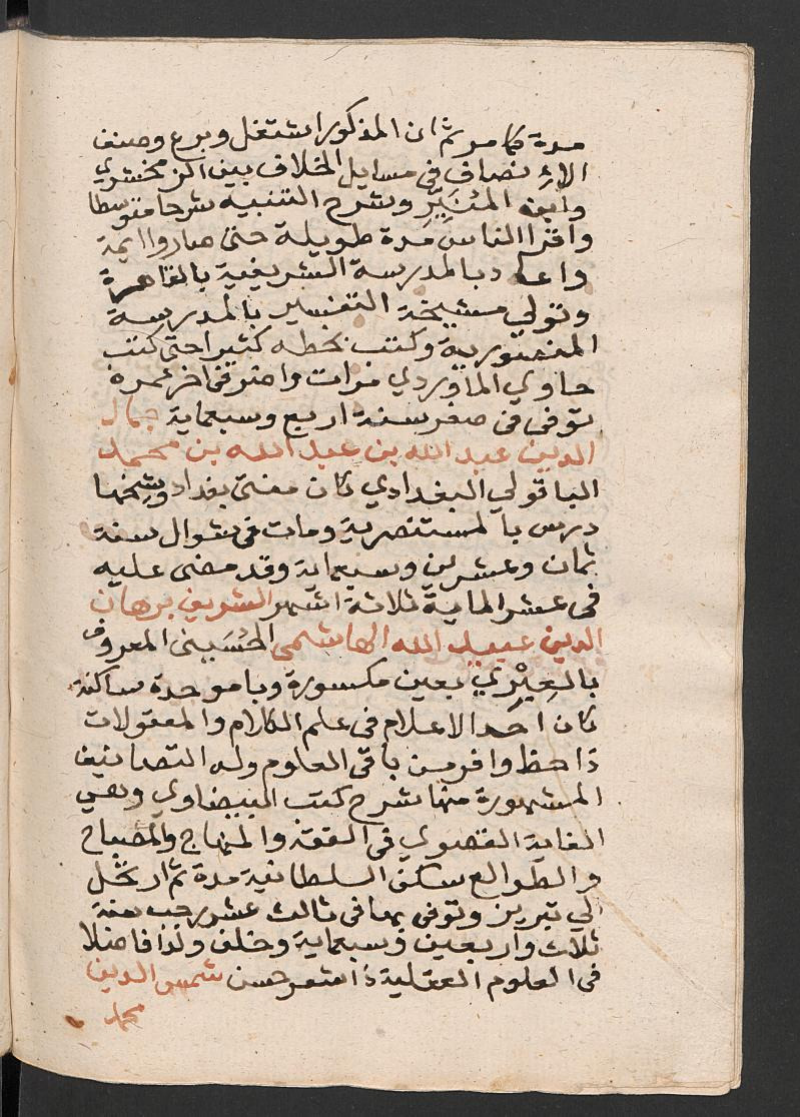 مدة كما مر ثم ان المذكور اشتغل وبرع وصنف
الانصاف في مسايل الخلاف بين الزمخشري
وابن المُنَيّر وشرح التنبيه شرحا متوسطا
واقرا الناس مدة طويلة حتى صاروا ايمة
واعاد بالمدرسة الشريفية بالقاهرة
وتولي مشيخة التفسير بالمدرسة
المنصورية وكتب بخطه كثيرا حتى كتب
حاوي الماوردي مرات واضر في اخر عمره
توفى في صفر سنة اربع وسبعماية جمال
الدين عبد الله بن عبد الله بن محمد
الباقولي البغدادي كان مفتي بغداد وشيخها
درس بالمستنصرية ومات في شوال سنة
ثمان وعشرين وسبعماية وقد مضى عليه
في عشر الماية ثلاثة اشهر الشريف برهان
الدين عبيد الله الهاشمي الحُسَيني المعروف
بالعِبْرِي بعين مكسورة وبا موحدة ساكنة
كان احد الاعلام في علم الكلام والمعقولات
ذا حظ وافر من باقي العلوم وله التصانيف
المشهورة منها شرح كتب البيضاوي وهي
الغاية القصوي في الفقه والمنهاج والمصباح
والطوالع سكن السلطانية مدة ثم ارتحل
الي تبريز وتوفى بها في ثالث عشر رجب سنة
ثلاث واربعين وسبعماية وخلف ولدا فاضلا
في العلوم العقلية ذا شعر حسن شمس الدين
محمد